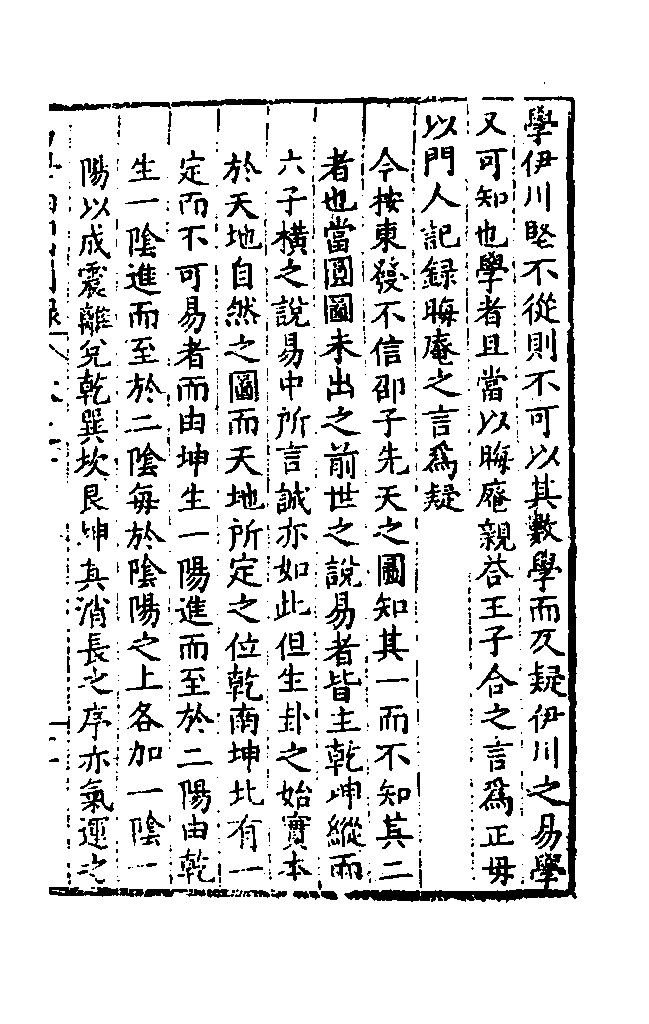 學伊川堅不從則不可以其數學而反疑伊川之易學
又可知也學者且當以晦庵親荅王子合之言爲正毋
以門人記録晦庵之言爲疑
今按東發不信邵子先天之圖知其一而不知其二
者也當圓圖未出之前世之說易者皆主乾坤縱而
六子橫之說易中所言誠亦如此但生卦之始實本
於天地自然之圖而天地所定之位乾南坤北有一
定而不可易者而由坤生一陽進而至於二陽由乾
生一陰進而至於二陰每於陰陽之上各加一陰一
陽以成震離兌乾巽坎艮坤其消長之序亦氣運之